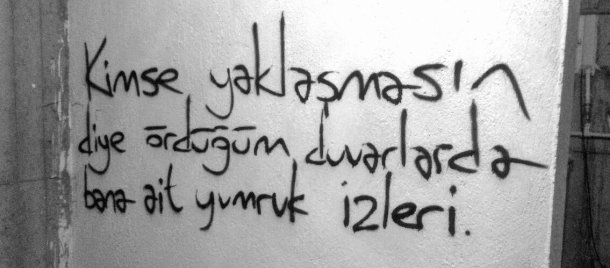 Kimse yaklaşmasın
diye ördüğüm duvarlarda
bana ait yumruk izleri.